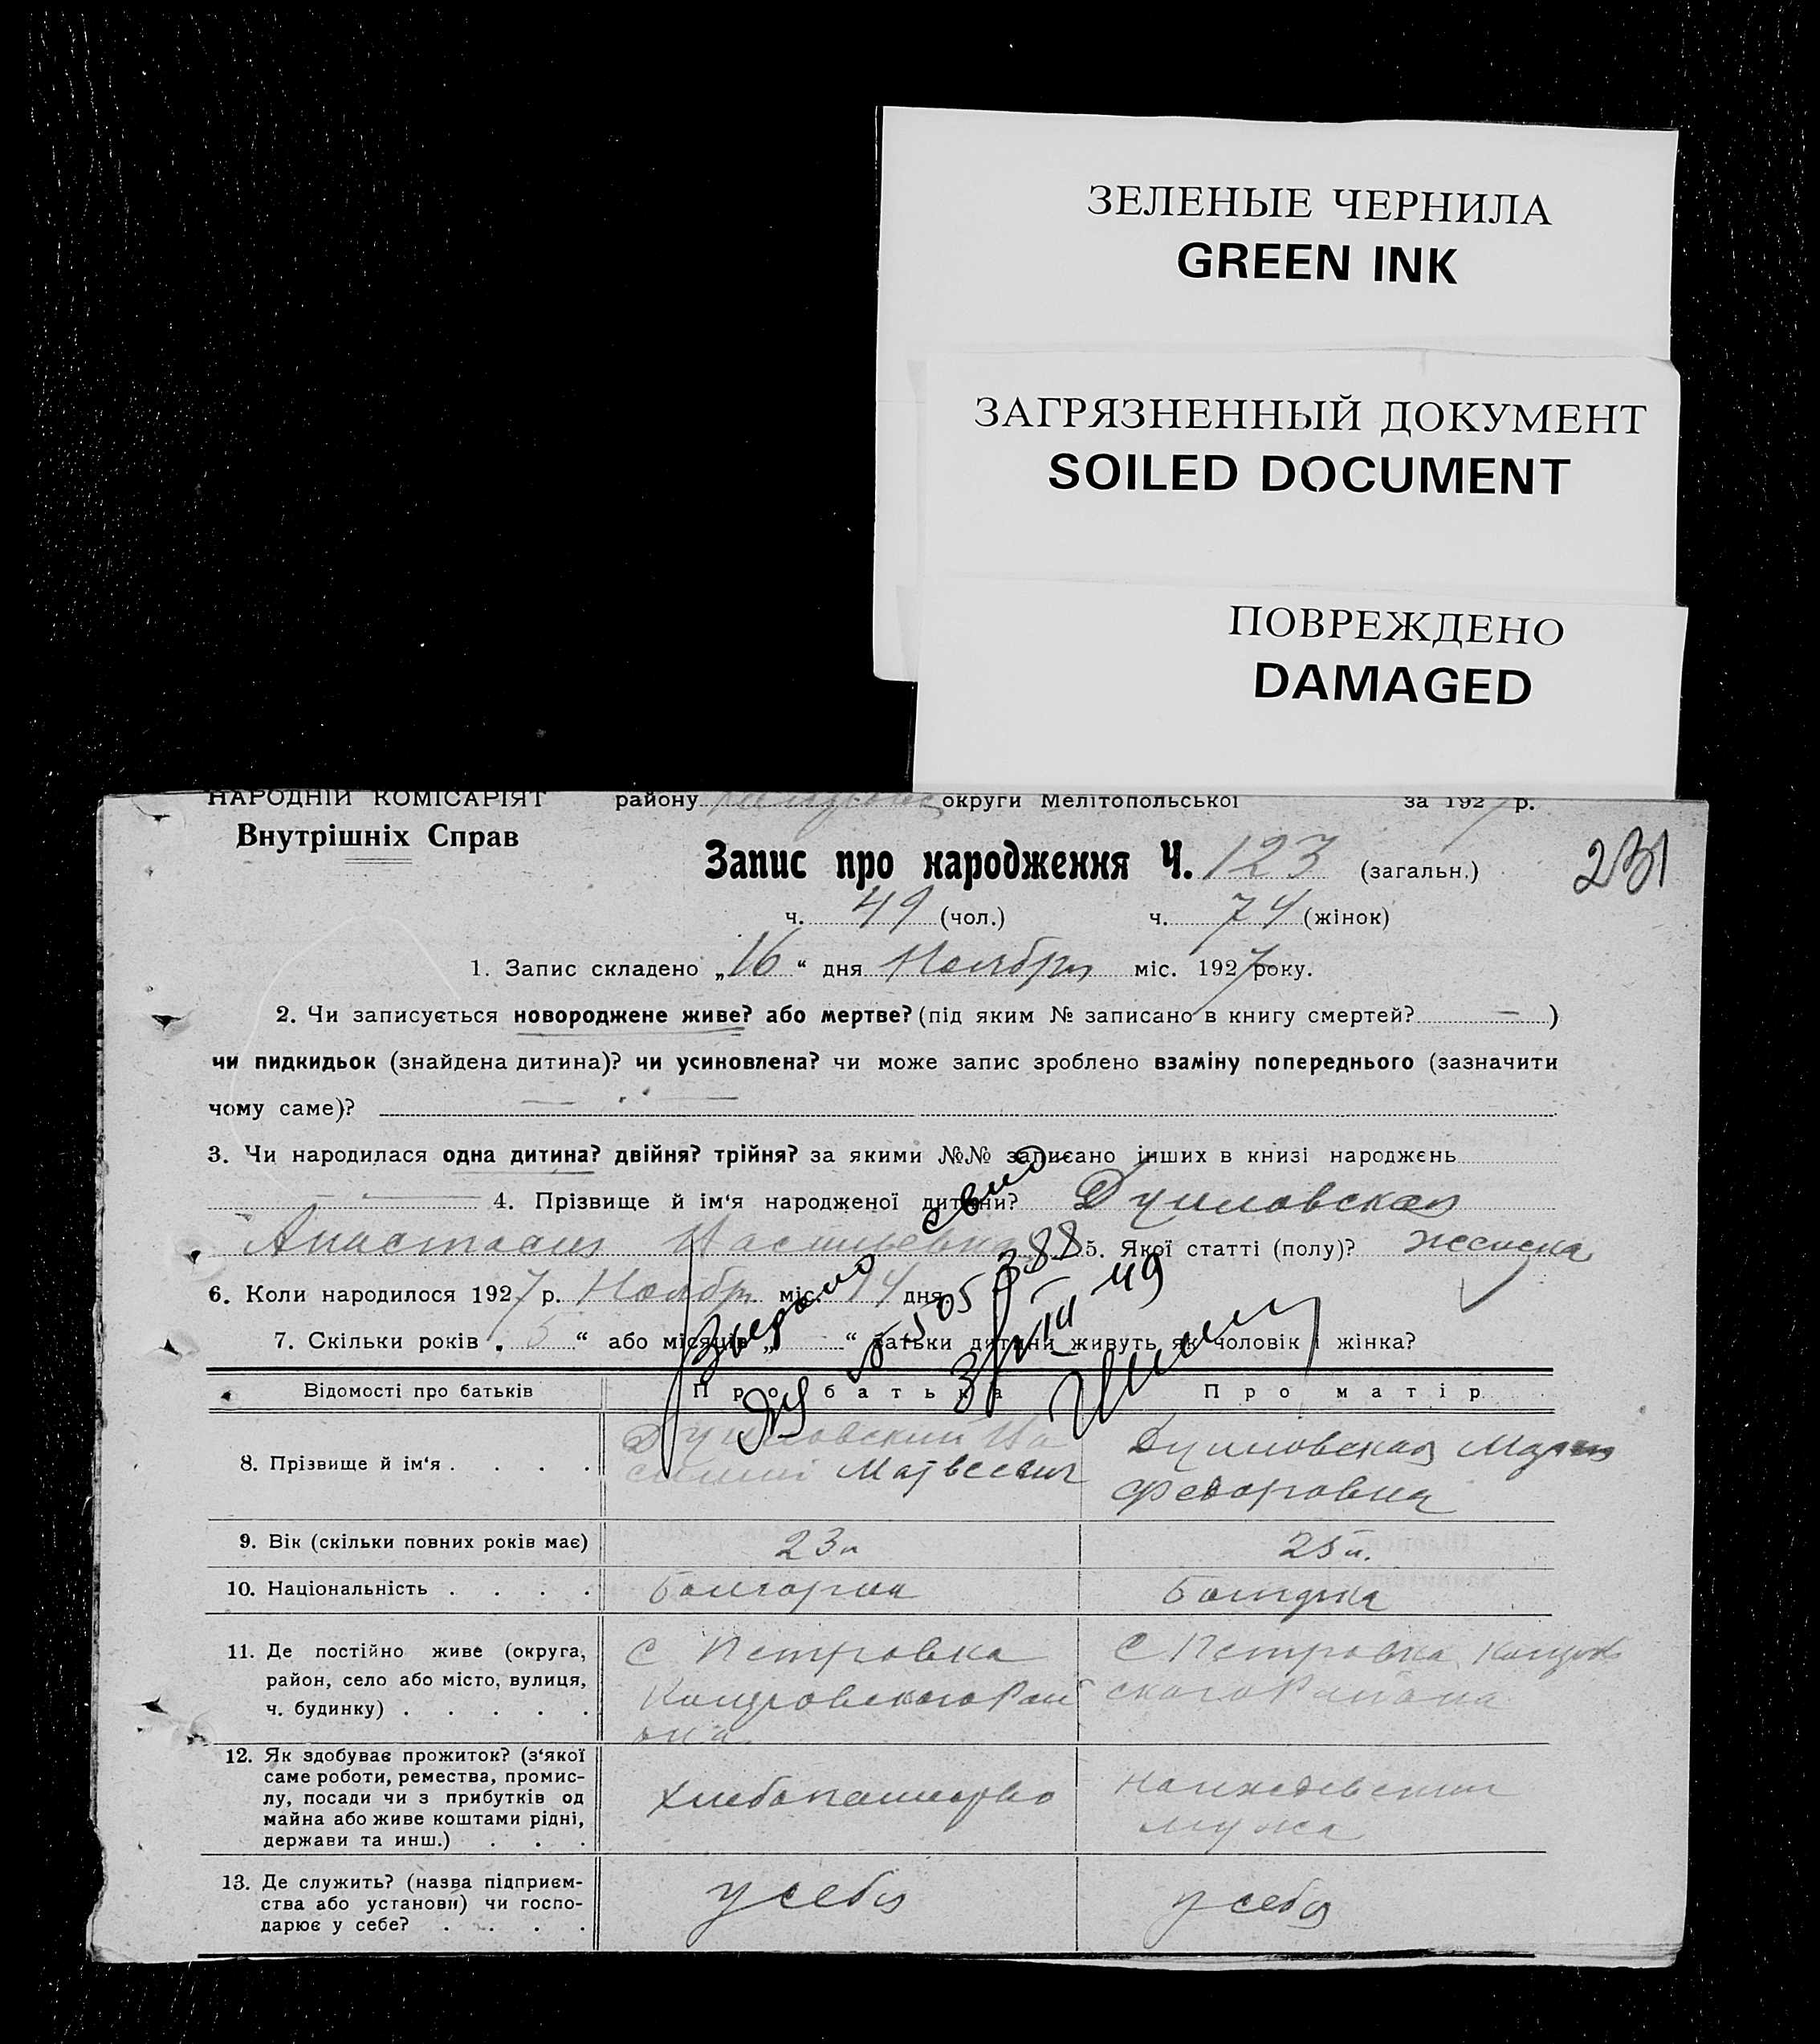 ЗЕЛЕНЫЕ ЧЕРНИЛА
GREEN INK
ЗАГРЯЗНЕННЫЙ ДОКУМЕНТ
SOILED DOCUMENT
ПОВРЕЖДЕНО
DAMAGED
НАРОДНІЙ КОМІСАРІЯТ району округи Мелітопольської за 1927 р.
Внутрішніх Справ
Запис про народження Ч. 123 (загальн.)
231
ч. 49 (чол.) ч. 74 (жінок)
1. Запис складено „16“ дня Ноября міс. 1927 року.
2. Чи записується новороджене живе? або мертве? (під яким № записано в книгу смертей? — )
чи пидкидьок (знайдена дитина)? чи усиновлена? чи може запис зроблено взаміну попереднього (зазначити
чому саме)?
3. Чи народилася одна дитина? двійня? трійня? за якими №№ записано інших в книзі народжень
4. Прізвище й ім'я народженої дитини? Душловская
Анастасия Васильевна 5. Якої статті (полу)? женска
6. Коли народилося 1927 р. Ноябр міс. 14 дня.
7. Скільки років „ 5 “ або місяців „ “ батьки дитини живуть як чоловік і жінка?
Відомості про батьків Про батька Про матір
8. Прізвище й ім'я . . . . Душловский Ва
силий Матвеевич
Душловская Мария
Федоровна
9. Вік (скільки повних років має) 23 л 25 л.
10. Національність . . . . Болгарин Болгарка
11. Де постійно живе (округа,
район, село або місто, вулиця,
ч. будинку) . . . . .
С Петровка
Райо
она
С Петровка
ского Района
12. Як здобуває прожиток? (з'якої
саме роботи, ремества, промис-
лу, посади чи з прибутків од
майна або живе коштами рідні,
держави та инш.) . . .
Хлебопашество
На иждевении
мужа
13. Де служить? (назва підприєм-
ства або установи) чи госпо-
дарює у себе? . . . .
у себя
у себя